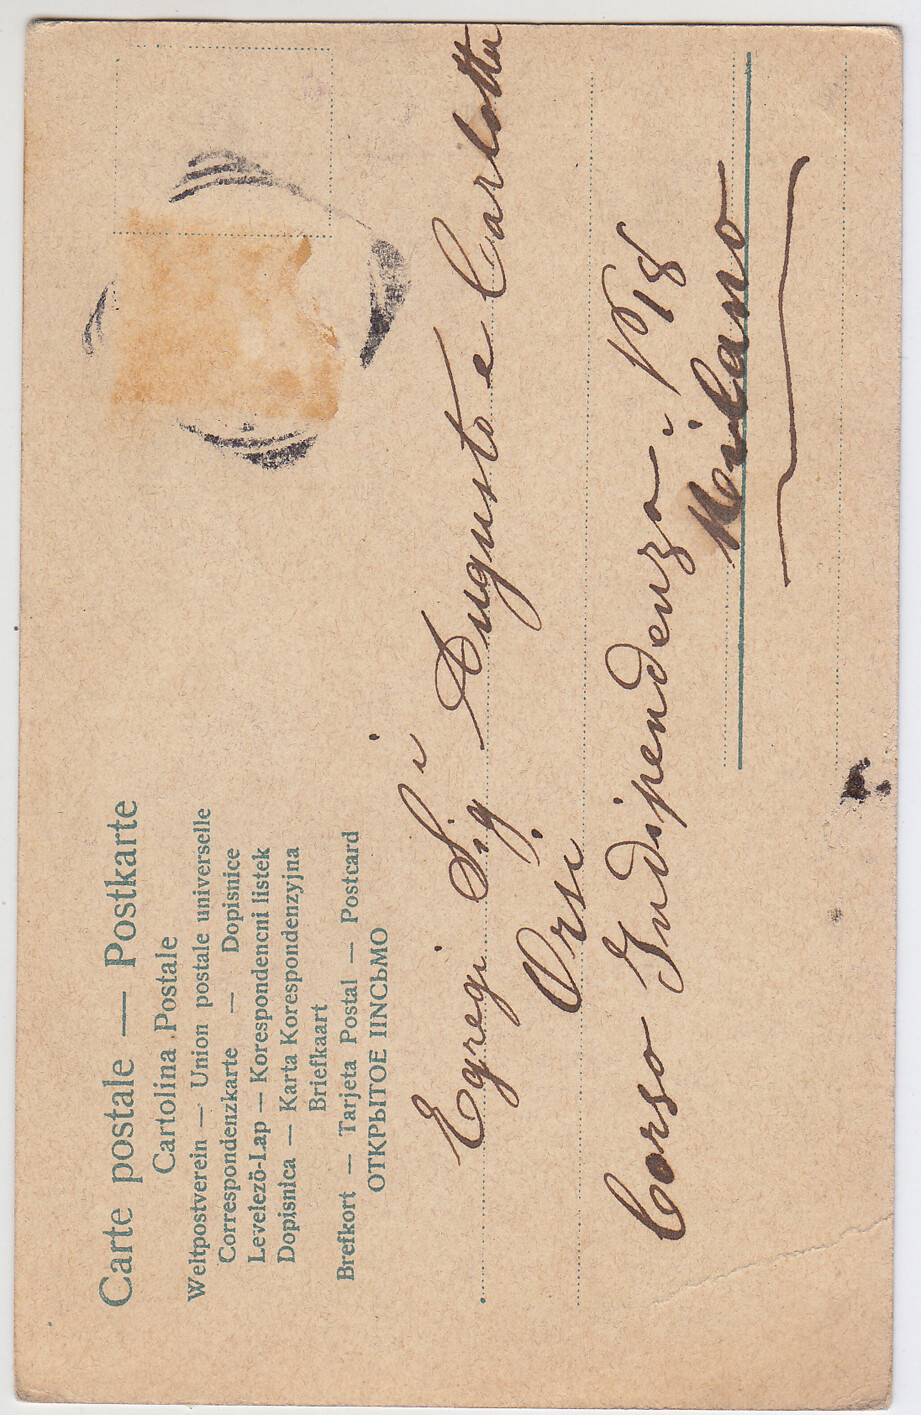 Carte postale — Postkarte
Cartolina Postale
Weltpostverein — Union postale universelle
Correspondenzkarte — Dopisnice
Levelezõ-Lap — Korespondencni listek
Dopisnica — Karta Korespondenzyjna
Briefkaart
Brefkort — Tarjeta Postal — Postcard
ОТКРЫТОЕ ІІИСЬМО
Egregi Sig.i Augusto e Carlotta
Orsi
Corso Indipendenza, No 18
Milano